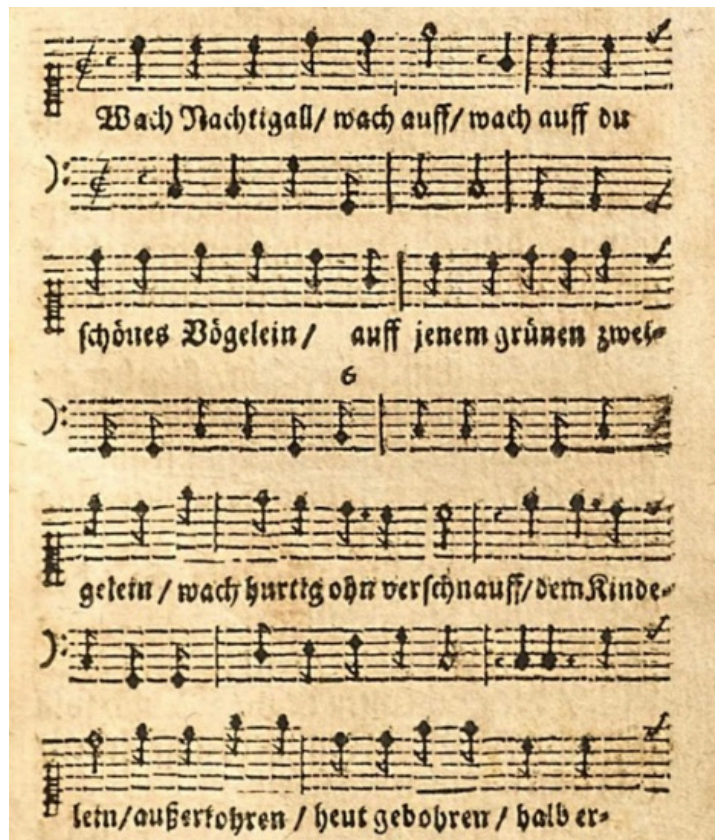 Wach Nachtigall/ wach auff/ wach auff du
ſchönes Vögelein/ auff jenem grünen zwei⸗
6
gelein/ wach hurtig ohn verſchnauff/ dem Kinde⸗
lein/ außerkohren/ heut gebohren/ halb er⸗